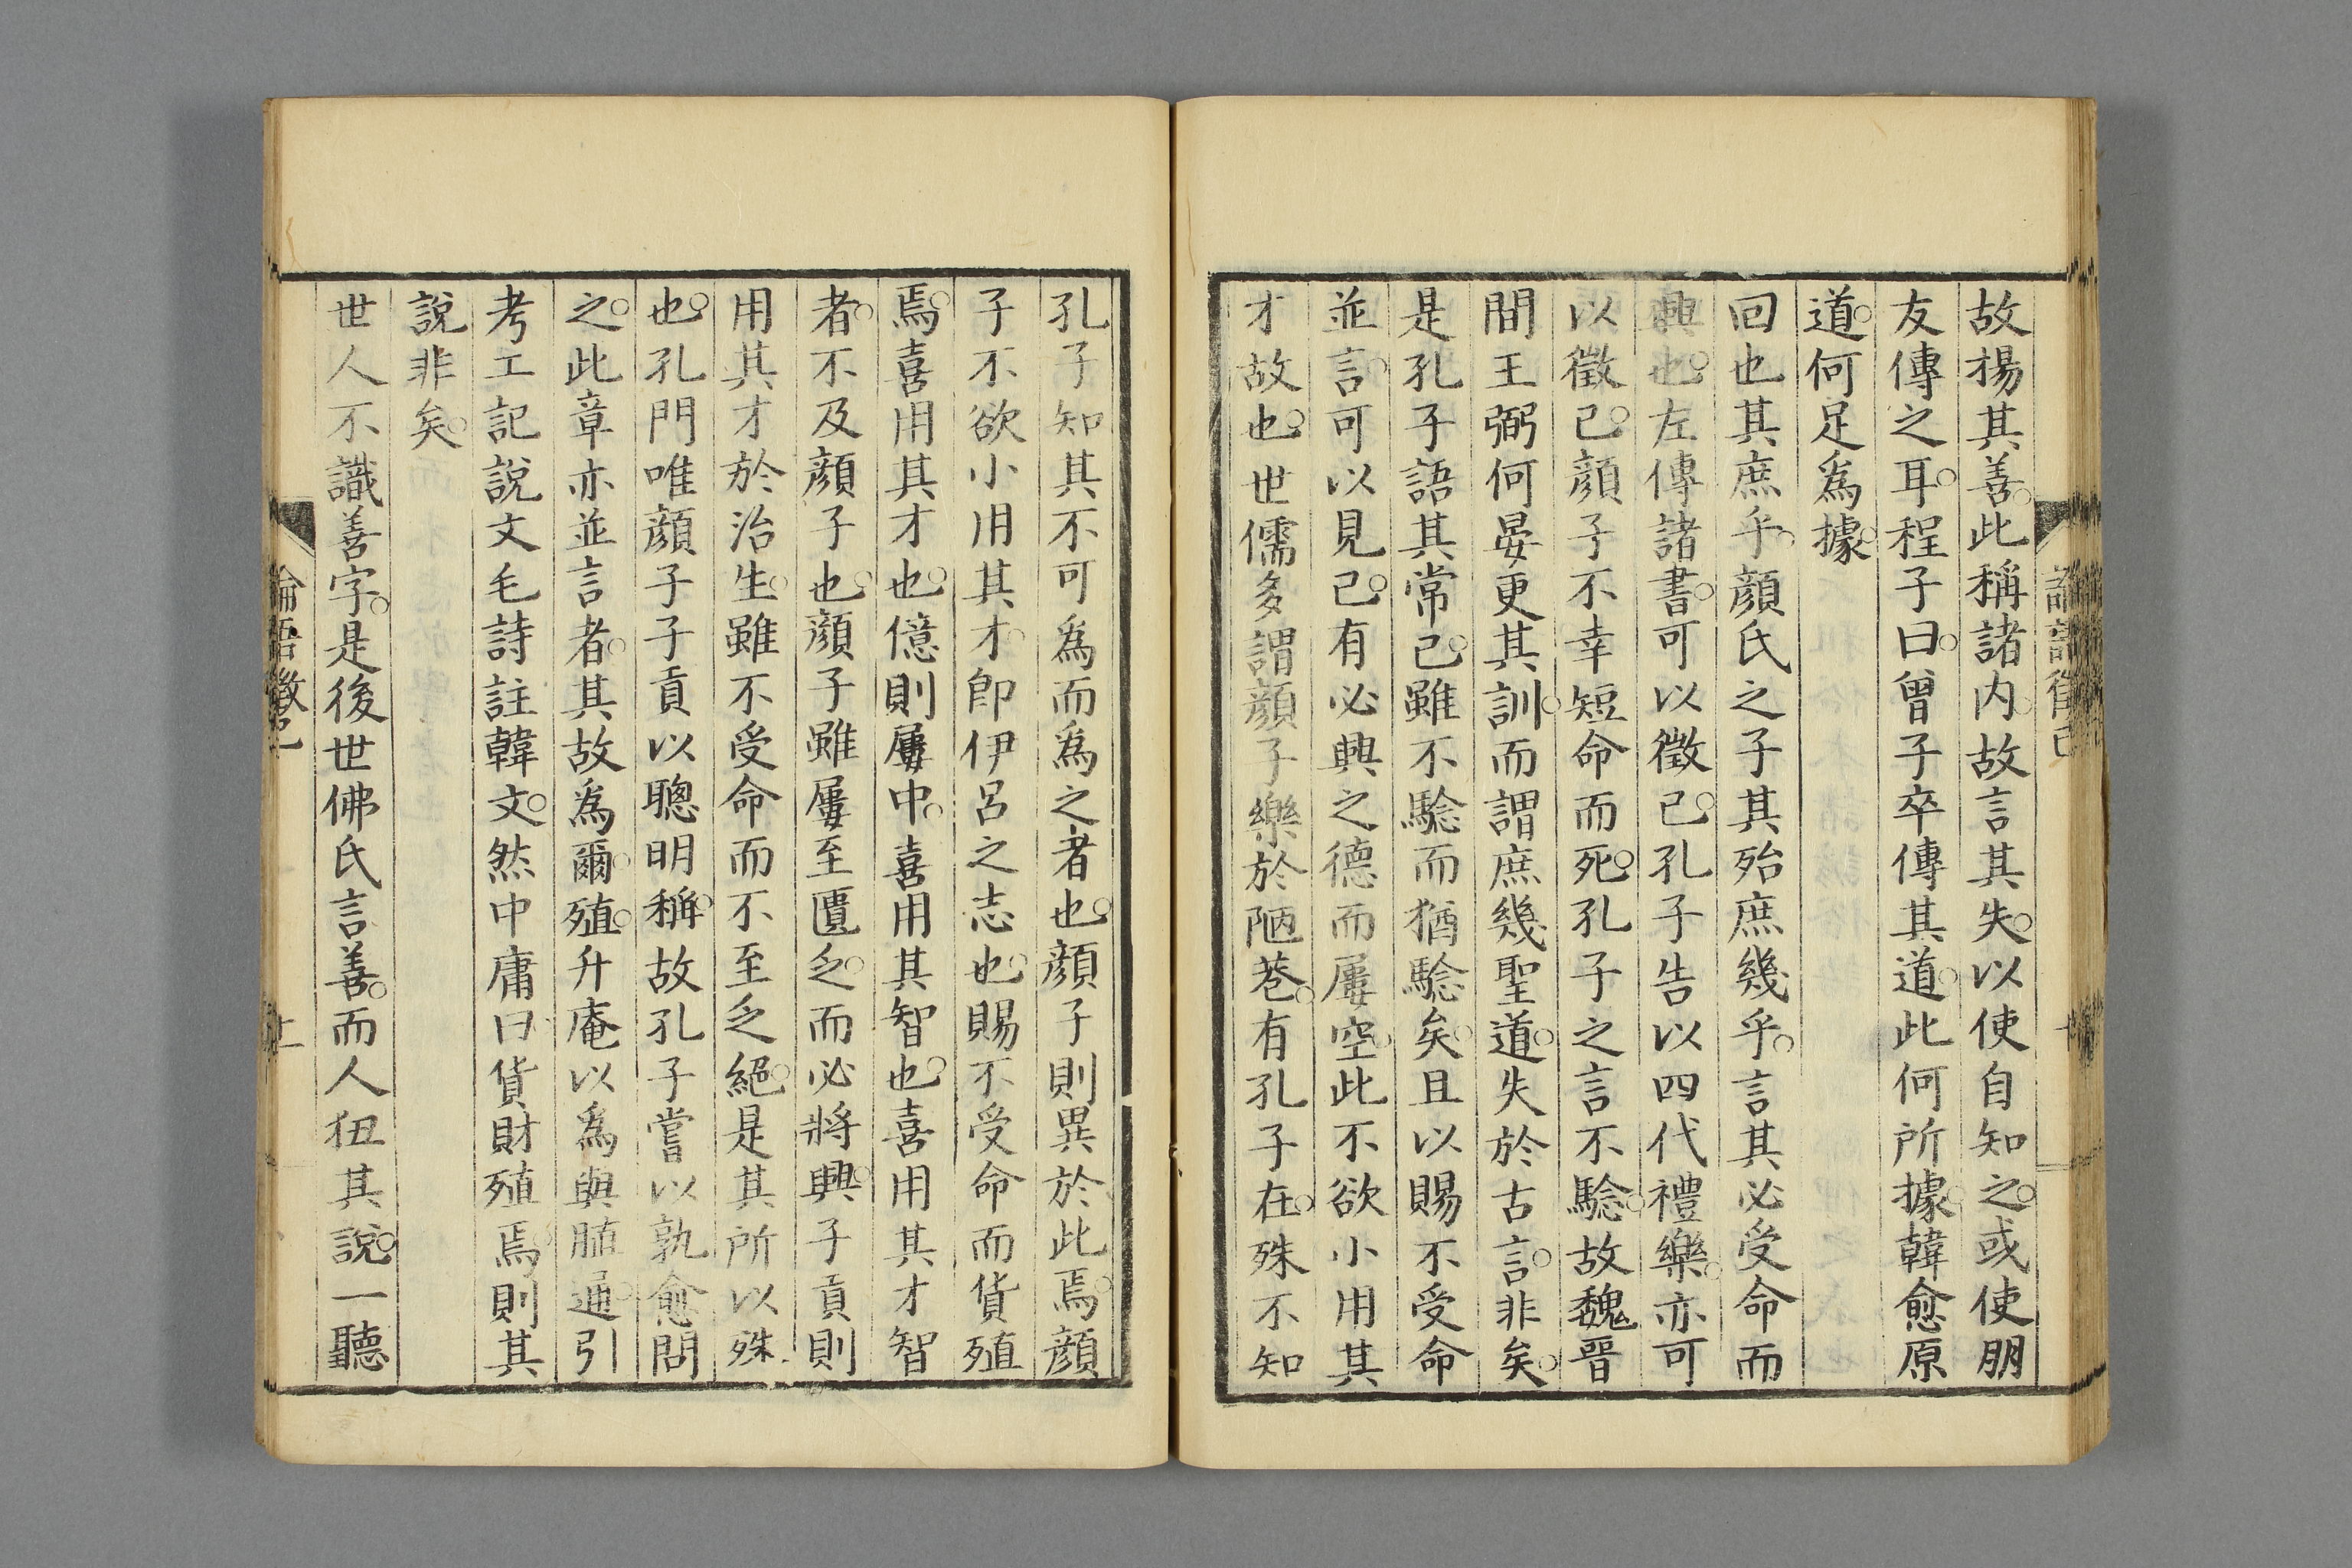 故揚其善。此稱諸内。故言其失。以使自知之。或使朋
友傳之耳。程子曰。曾子卒傳其道。此何所據。韓愈原
道。何足爲據。
回也其庶乎。顔氏之子其殆庶幾乎。言其必受命而
興也。左傳諸書。可以徵已。孔子告以四代禮樂。亦可
以徵已。顔子不幸短命而死。孔子之言不騐。故魏晉
間王弼何晏更其訓。而謂庶幾聖道。失於古言。非矣。
是孔子語其常已。雖不騐而猶騐矣。且以賜不受命
並言。可以見已。有必興之德而屢空。此不欲小用其
才故也。世儒多謂顔子樂於陋巷。有孔子在。殊不知
孔子知其不可爲而爲之者也。顔子則異於此焉。顔
子不欲小用其才。卽伊呂之志也。賜不受命而貨殖
焉。喜用其才也。億則屢中。喜用其智也。喜用其才智
者。不及顔子也。顔子雖屢至匱乏。而必將興。子貢則
用其才於治生。雖不受命而不至乏絕。是其所以殊
也。孔門唯顔子子貢以聰明稱。故孔子嘗以孰愈問
之。此章亦並言者。其故爲爾。殖。升庵以爲與脜通。引
考工記說文毛詩註韓文。然中庸曰貨財殖焉。則其
說非矣。
世人不識善字。是後世佛氏言善。而人狃其說。一聽
論語徵己
十
論語徵己
十一